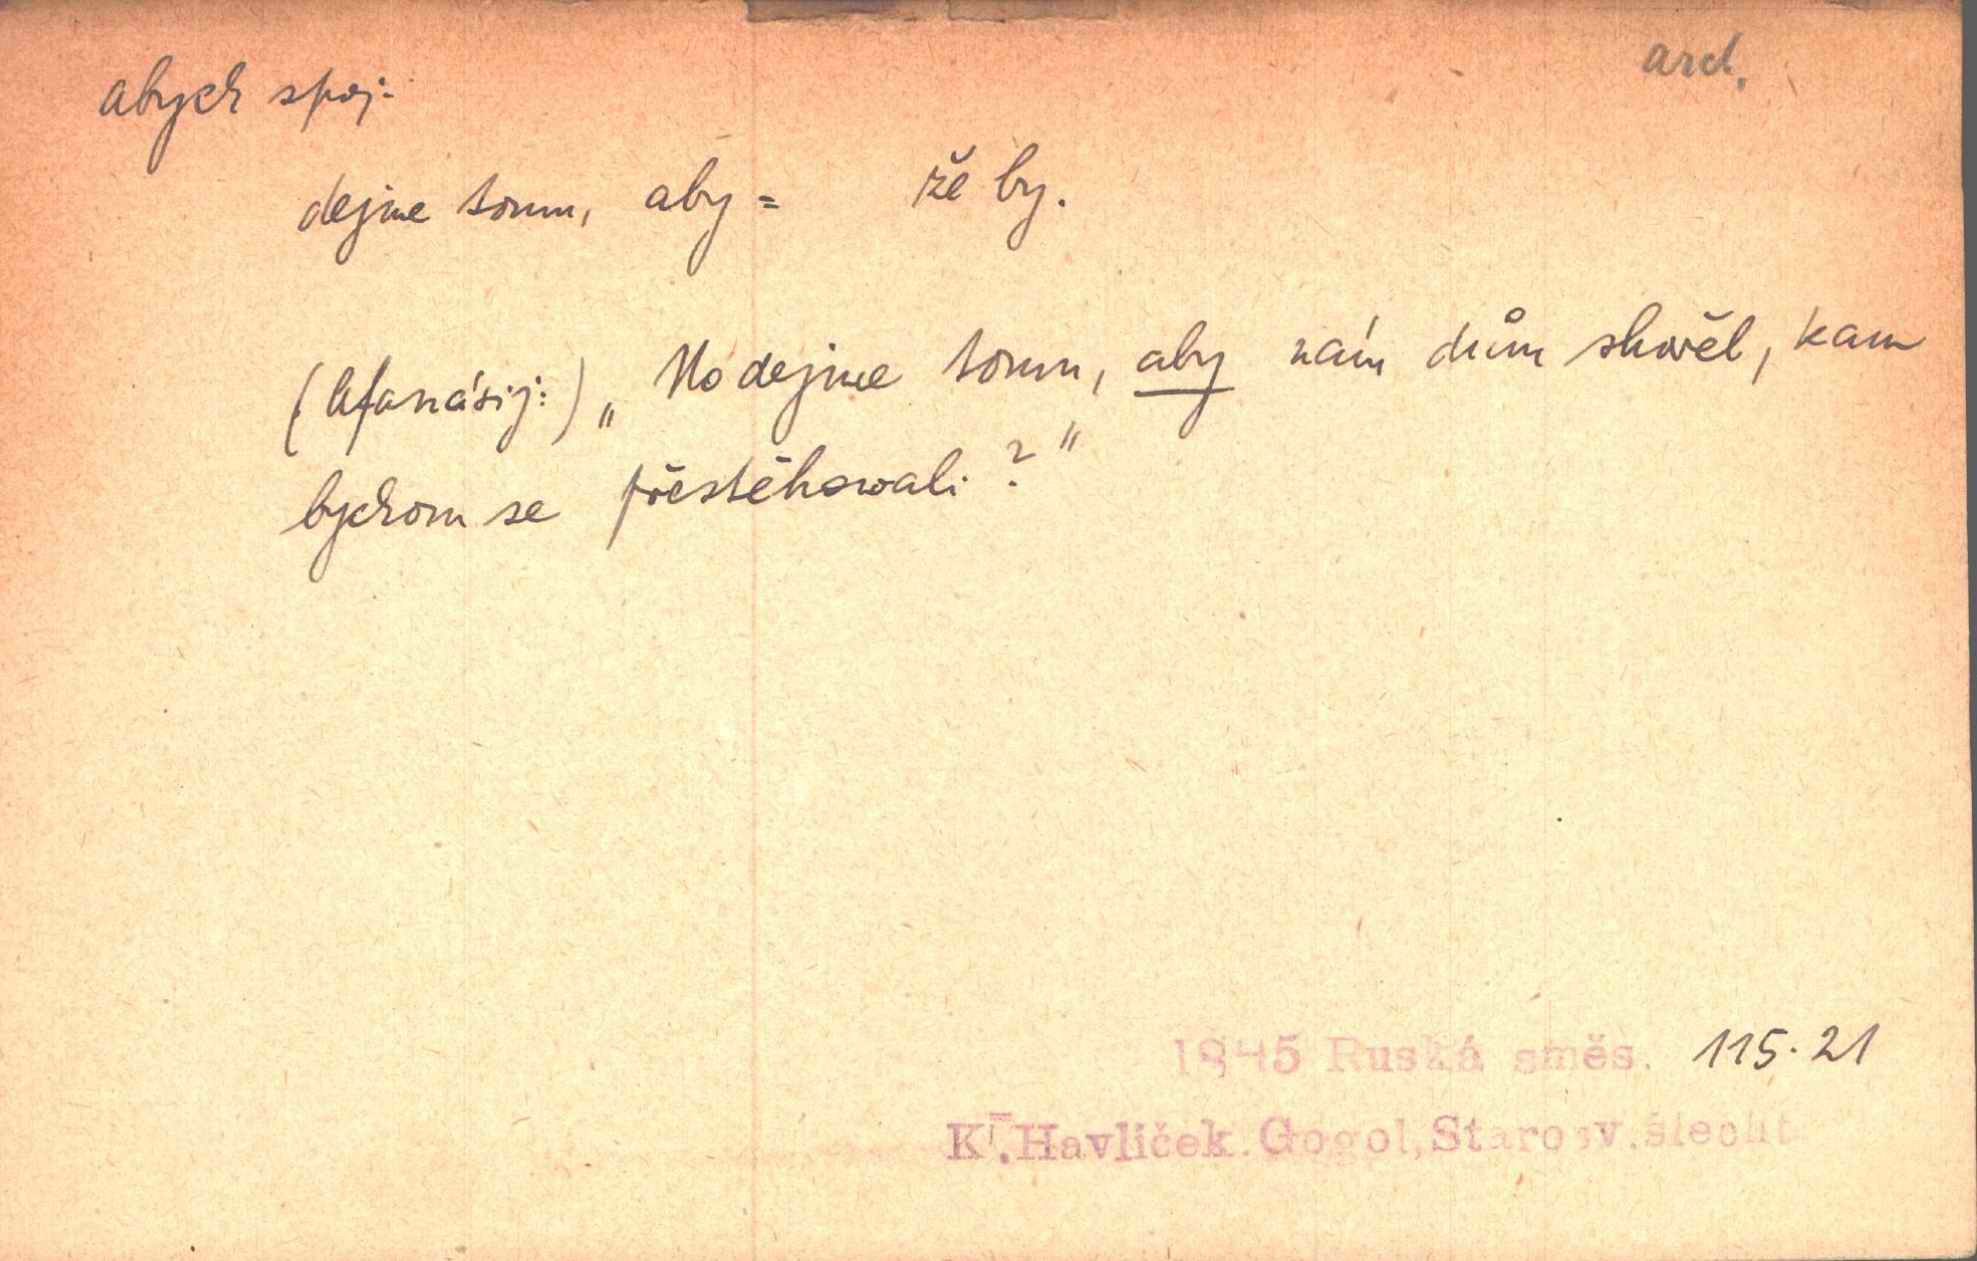 arch.
abych spoj.
dejme tomu, aby = že by.
(Afanásij:) „No dejme tomu, aby nám dům shořel, kam
bychom se přestěhowali?"
1845 Ruská směs. 115.21
K. Havlíček. Gogol, Starosv. šlecht